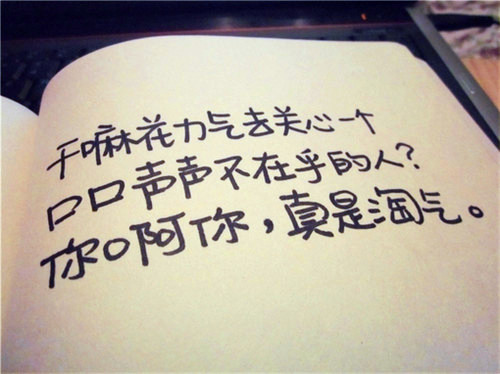 干嘛花力气去关心一个
口口声声不在乎的人？
你啊你，真是淘气。